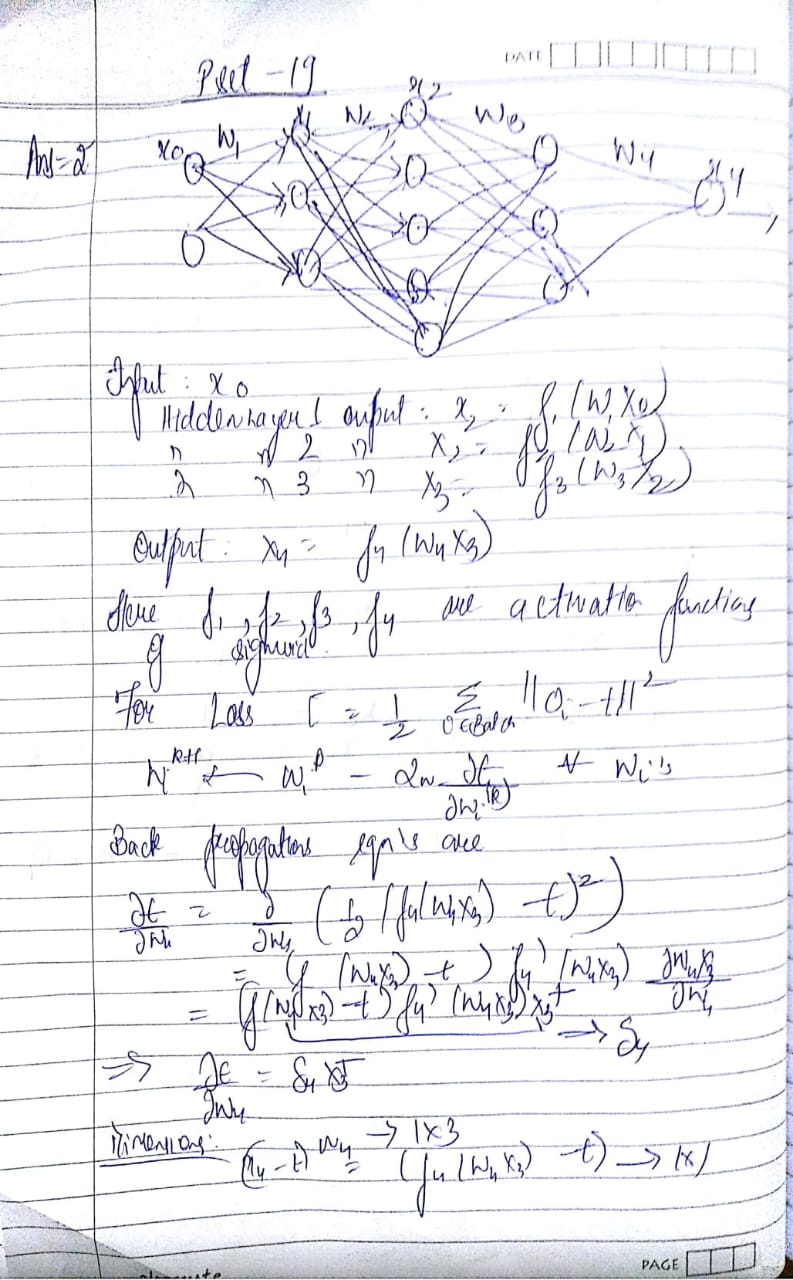 DATE
Pset - 19
Ans = 2
x0 W1 x1 W2 x2 W3 W4 x4
Input : x0
Hidden Layer 1 output : x2 = f1 (W1 X0)
" " 2 " X2 = f2 (W2 X1)
" " 3 " X3 = f3 (W3 X2)
Output : x4 = f4 (W4 X3)
Here f1, f2, f3, f4 are activation functions
sigmoid
For Loss E = 1/2 Σ O∈Batch ||Oi - t||²
Wi^k+1 ← Wi^k - ∂E/∂Wi^(k) ∀ Wi's
Back propagations eqn's are
∂E/∂W4 = ∂/∂W4 (1/2 (f4(W4X3) - t)²)
= (f (W4X3) - t) f4' (W4X3) ∂W4X3/∂W4
= (f(W4X3) - t) f4' (W4X3) X3^T → δ4
⇒ ∂E/∂W4 = δ4 X3^T
Dimensions: W4 → 1x3
(X4 - t) = (f4 (W4 X3) - t) → 1x1
PAGE